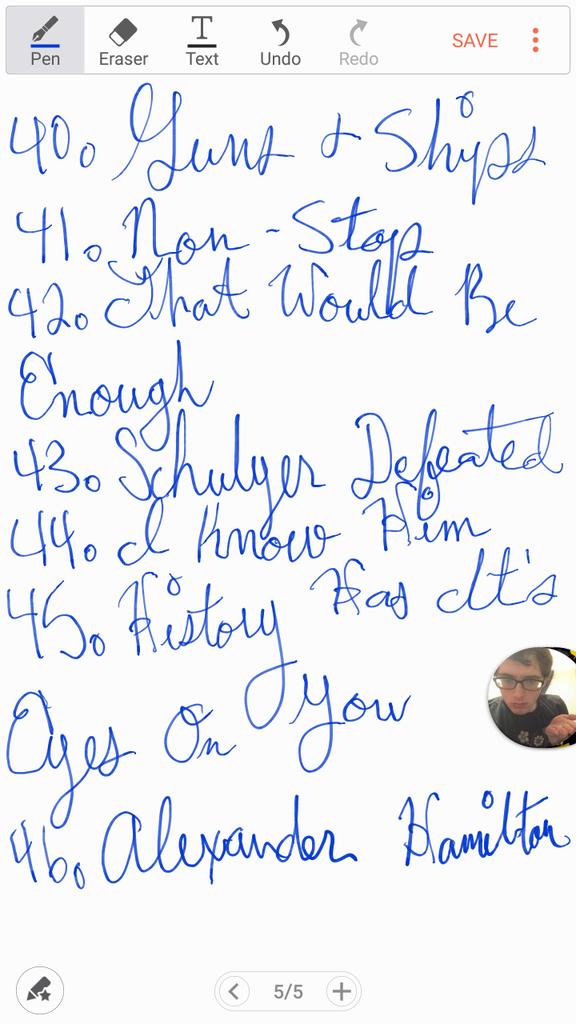 Pen Eraser Text Undo Redo SAVE
40. Guns & Ships
41. Non-Stop
42. That Would Be
Enough
43. Schulyer Defeated
44. I Know Him
45. History Has It's
Eyes On You
46. Alexander Hamilton
5/5